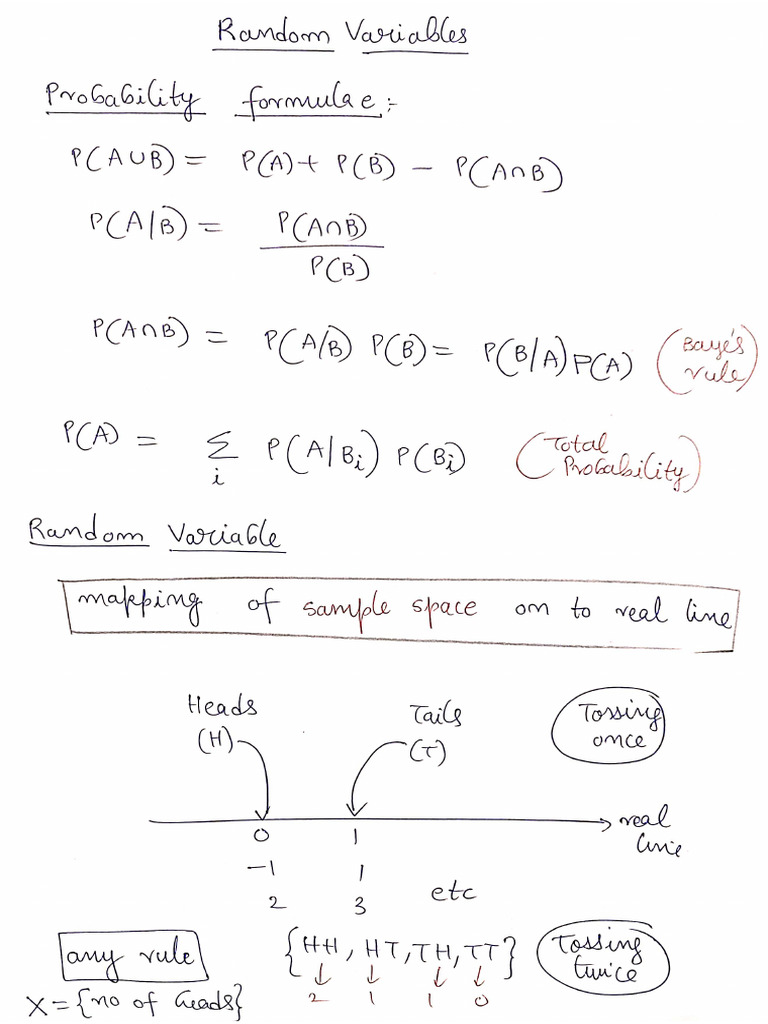 Random Variables
Probability formulae :-
P(A∪B) = P(A) + P(B) - P(A∩B)
P(A/B) = P(A∩B) / P(B)
P(A∩B) = P(A/B) P(B) = P(B/A) P(A) (Baye's rule)
P(A) = Σ_i P(A/B_i) P(B_i) (Total Probability)
Random Variable
mapping of sample space on to real line
Heads (H) Tails (T) Tossing once
0 1 real line
-1 1
2 3 etc
any rule {HH, HT, TH, TT} Tossing twice
X = {no of heads} 2 1 1 0